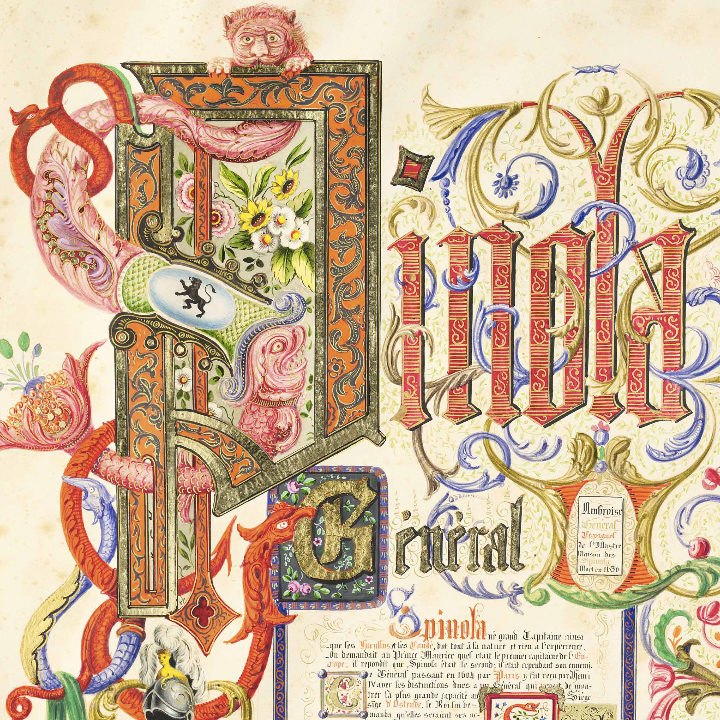 Spinola
Général
Ambroise
Général
Espagnol
de l'Illustre
Maison des
Spinola
Mort en 1630
Spinola né grand Capitaine ainsi
que les Lucullus et les Condé, dut tout à la nature et rien à l'expérience.
On demandait au Prince Maurice quel était le premier capitaine de l'Eu-
rope; il répondit que Spinola était le second; il était cependant son ennemi.
Ce Général passant en 1604 par Paris y fut reçu par Henri
IV avec les distinctions dues a un Général qui venait de mon-
trer la plus grande capacité au Siège
d'Ostende, le Roi
manda qu'elles seraient ses